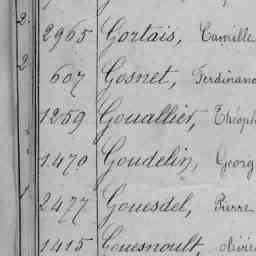 2. 2965 Gortais, Camille
2 607 Gosnet, Ferdinand
1259 Gouallier, Théoph
1.470 Goudelin, Georg
1 2477 Gouesdel, Pierre
1415 Gouesnoult, olivie